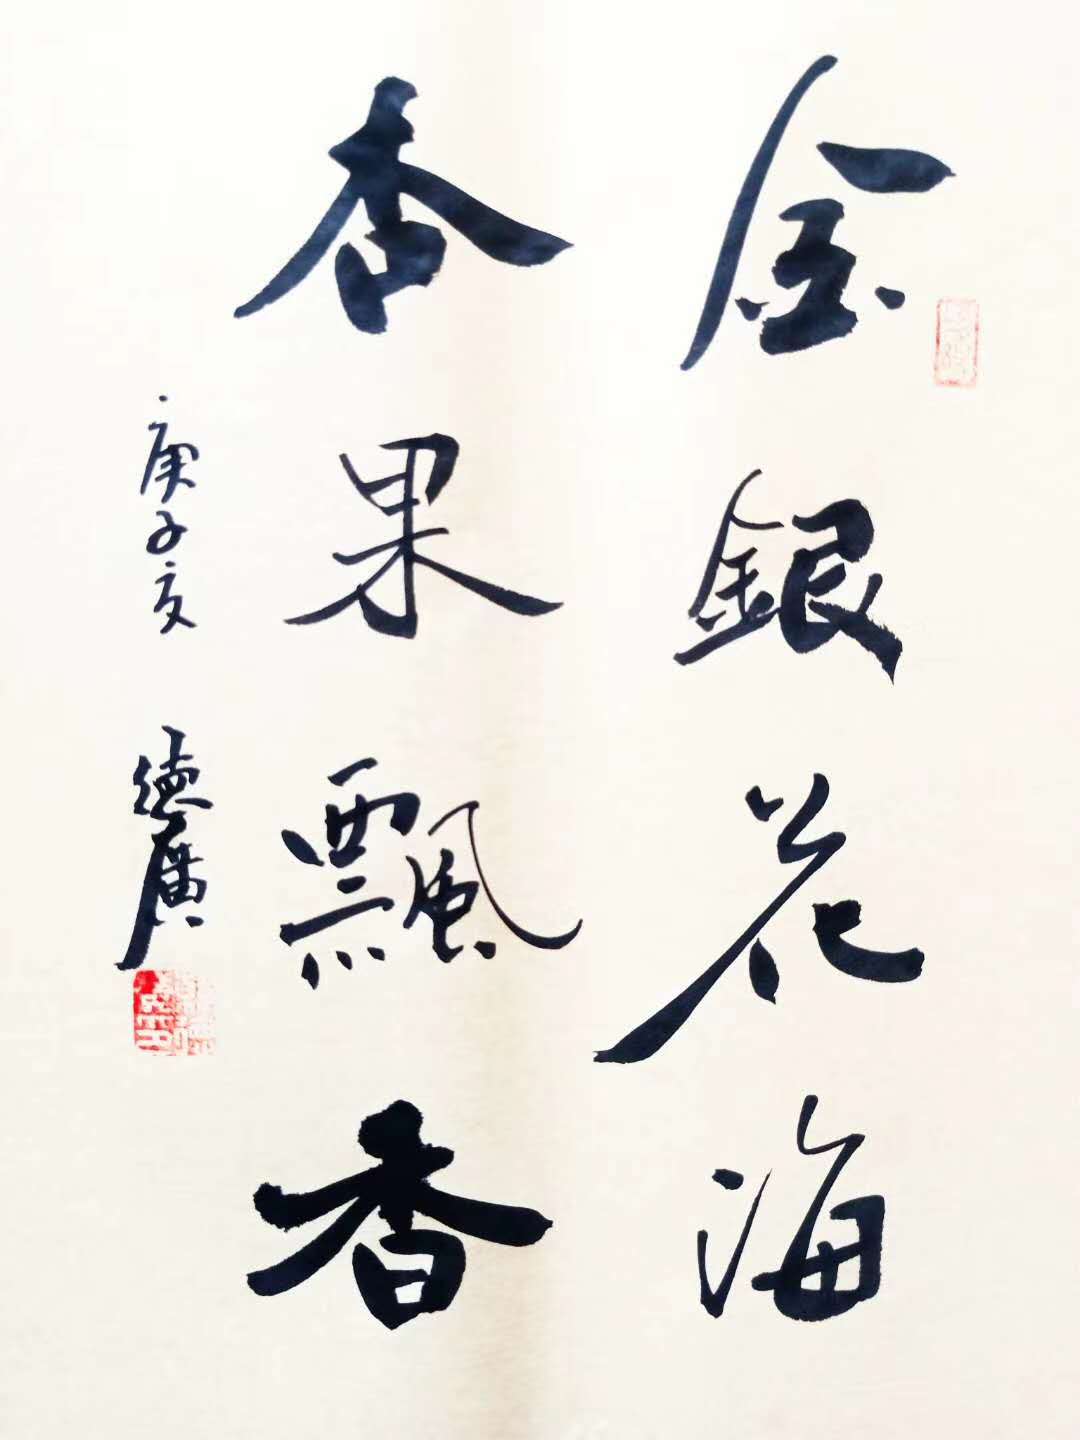 金銀花海
杏果飄香
庚子夏
德廣